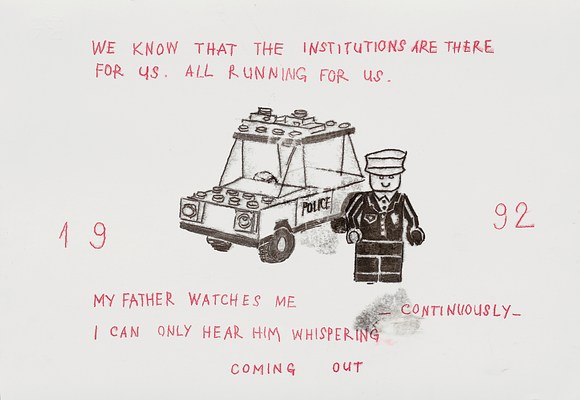 WE KNOW THAT THE INSTITUTIONS ARE THERE
FOR US. ALL RUNNING FOR US.
POLICE
19 92
MY FATHER WATCHES ME
_ CONTINUOUSLY_
I CAN ONLY HEAR HIM WHISPERING
COMING OUT